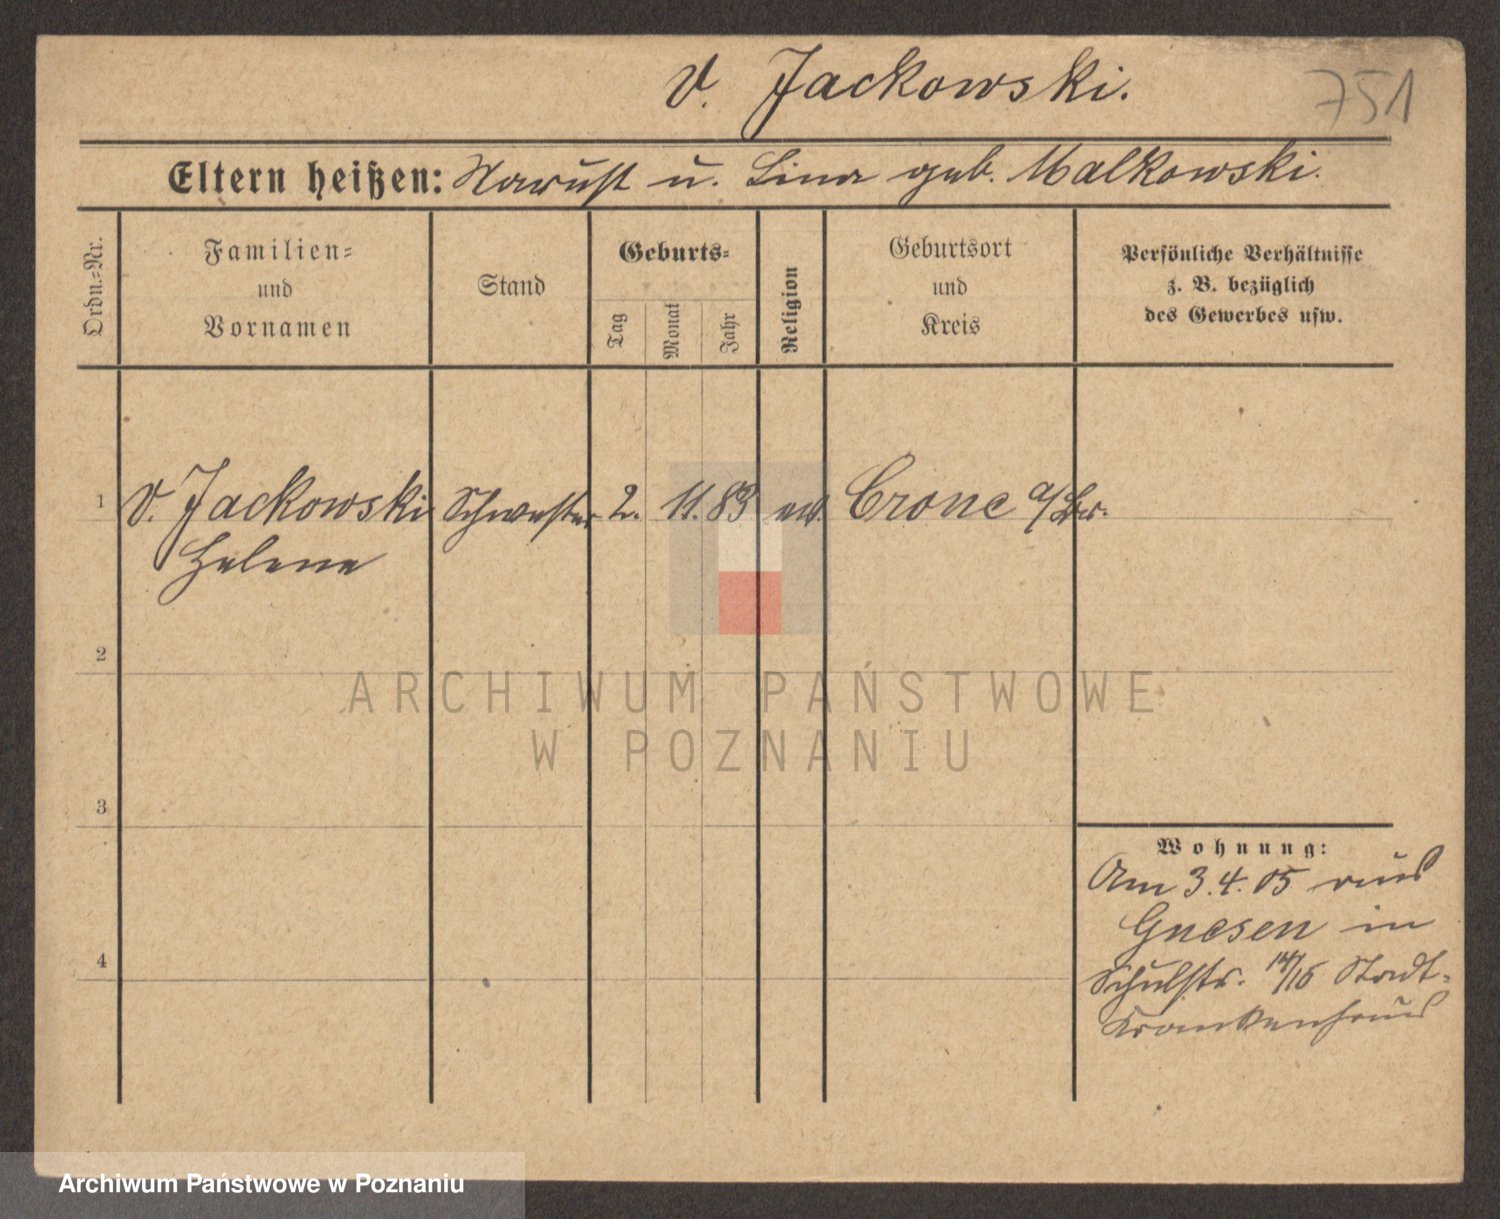 v. Jackowski.
751
Eltern heißen: u. Lina geb. Malkowski.
Ordn.-Nr.
Familien-
und
Vornamen
Stand
Geburts-
Tag
Monat
Jahr
Religion
Geburtsort
und
Kreis
Persönliche Verhältnisse
z. B. bezüglich
des Gewerbes usw.
1 v. Jackowski Schwester 2. 11. 83 Crone a/Br.
Helene
2
3
4
Wohnung:
Am 3.4.05 aus
Gnesen in
Schulstr. 14/15 Stadt-
Krankenhaus
ARCHIWUM PAŃSTWOWE
W POZNANIU
Archiwum Państwowe w Poznaniu